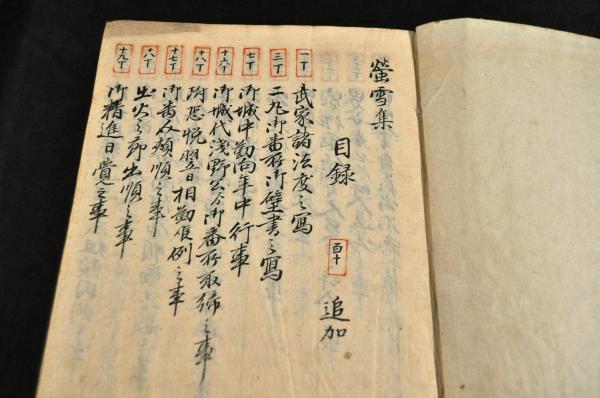 螢雪集
目録 百十 追加
一丁 武家諸法度之寫
三丁 二丸御番所御壁書之寫
七丁 御城中勤向年中行事
十六丁 御城代浅野公ゟ御番所取締之事
十八丁 恐悦翌日相勤候例之事
十七丁 御番 順之事
十八丁 出火之節出順之事
十九丁 御精進日覚之事